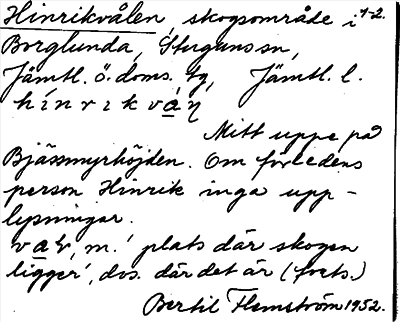 Hinrikvålen, skogsområde i 1-2.
Borglunda, Stuguns sn,
Jämtl. ö. doms. tg, Jämtl. l.
hinrikvaɳ
Mitt uppe på
Bjässmyrhöjden. Om förledens
person Hinrik inga upp-
lysningar.
m. 'plats där skogen
ligger', dvs. där det är (forts.)
Bertil Flemström 1952.